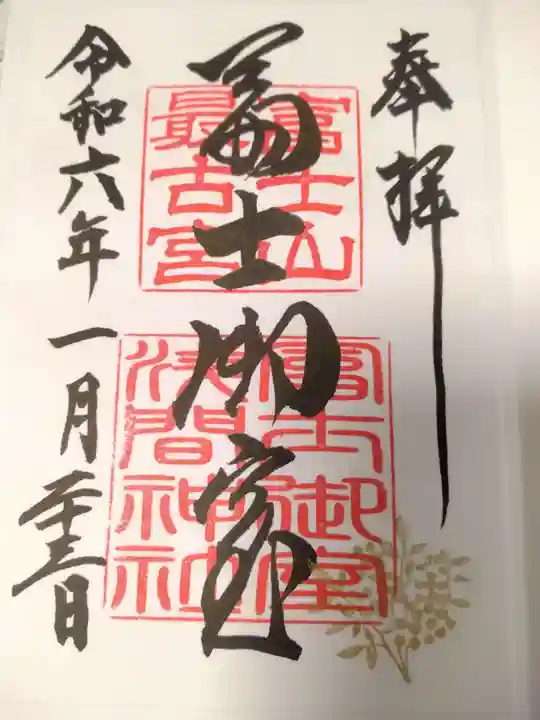 奉拝
富士山
最古宮
冨士御室
冨士御室
浅間神社
令和六年一月二十三日